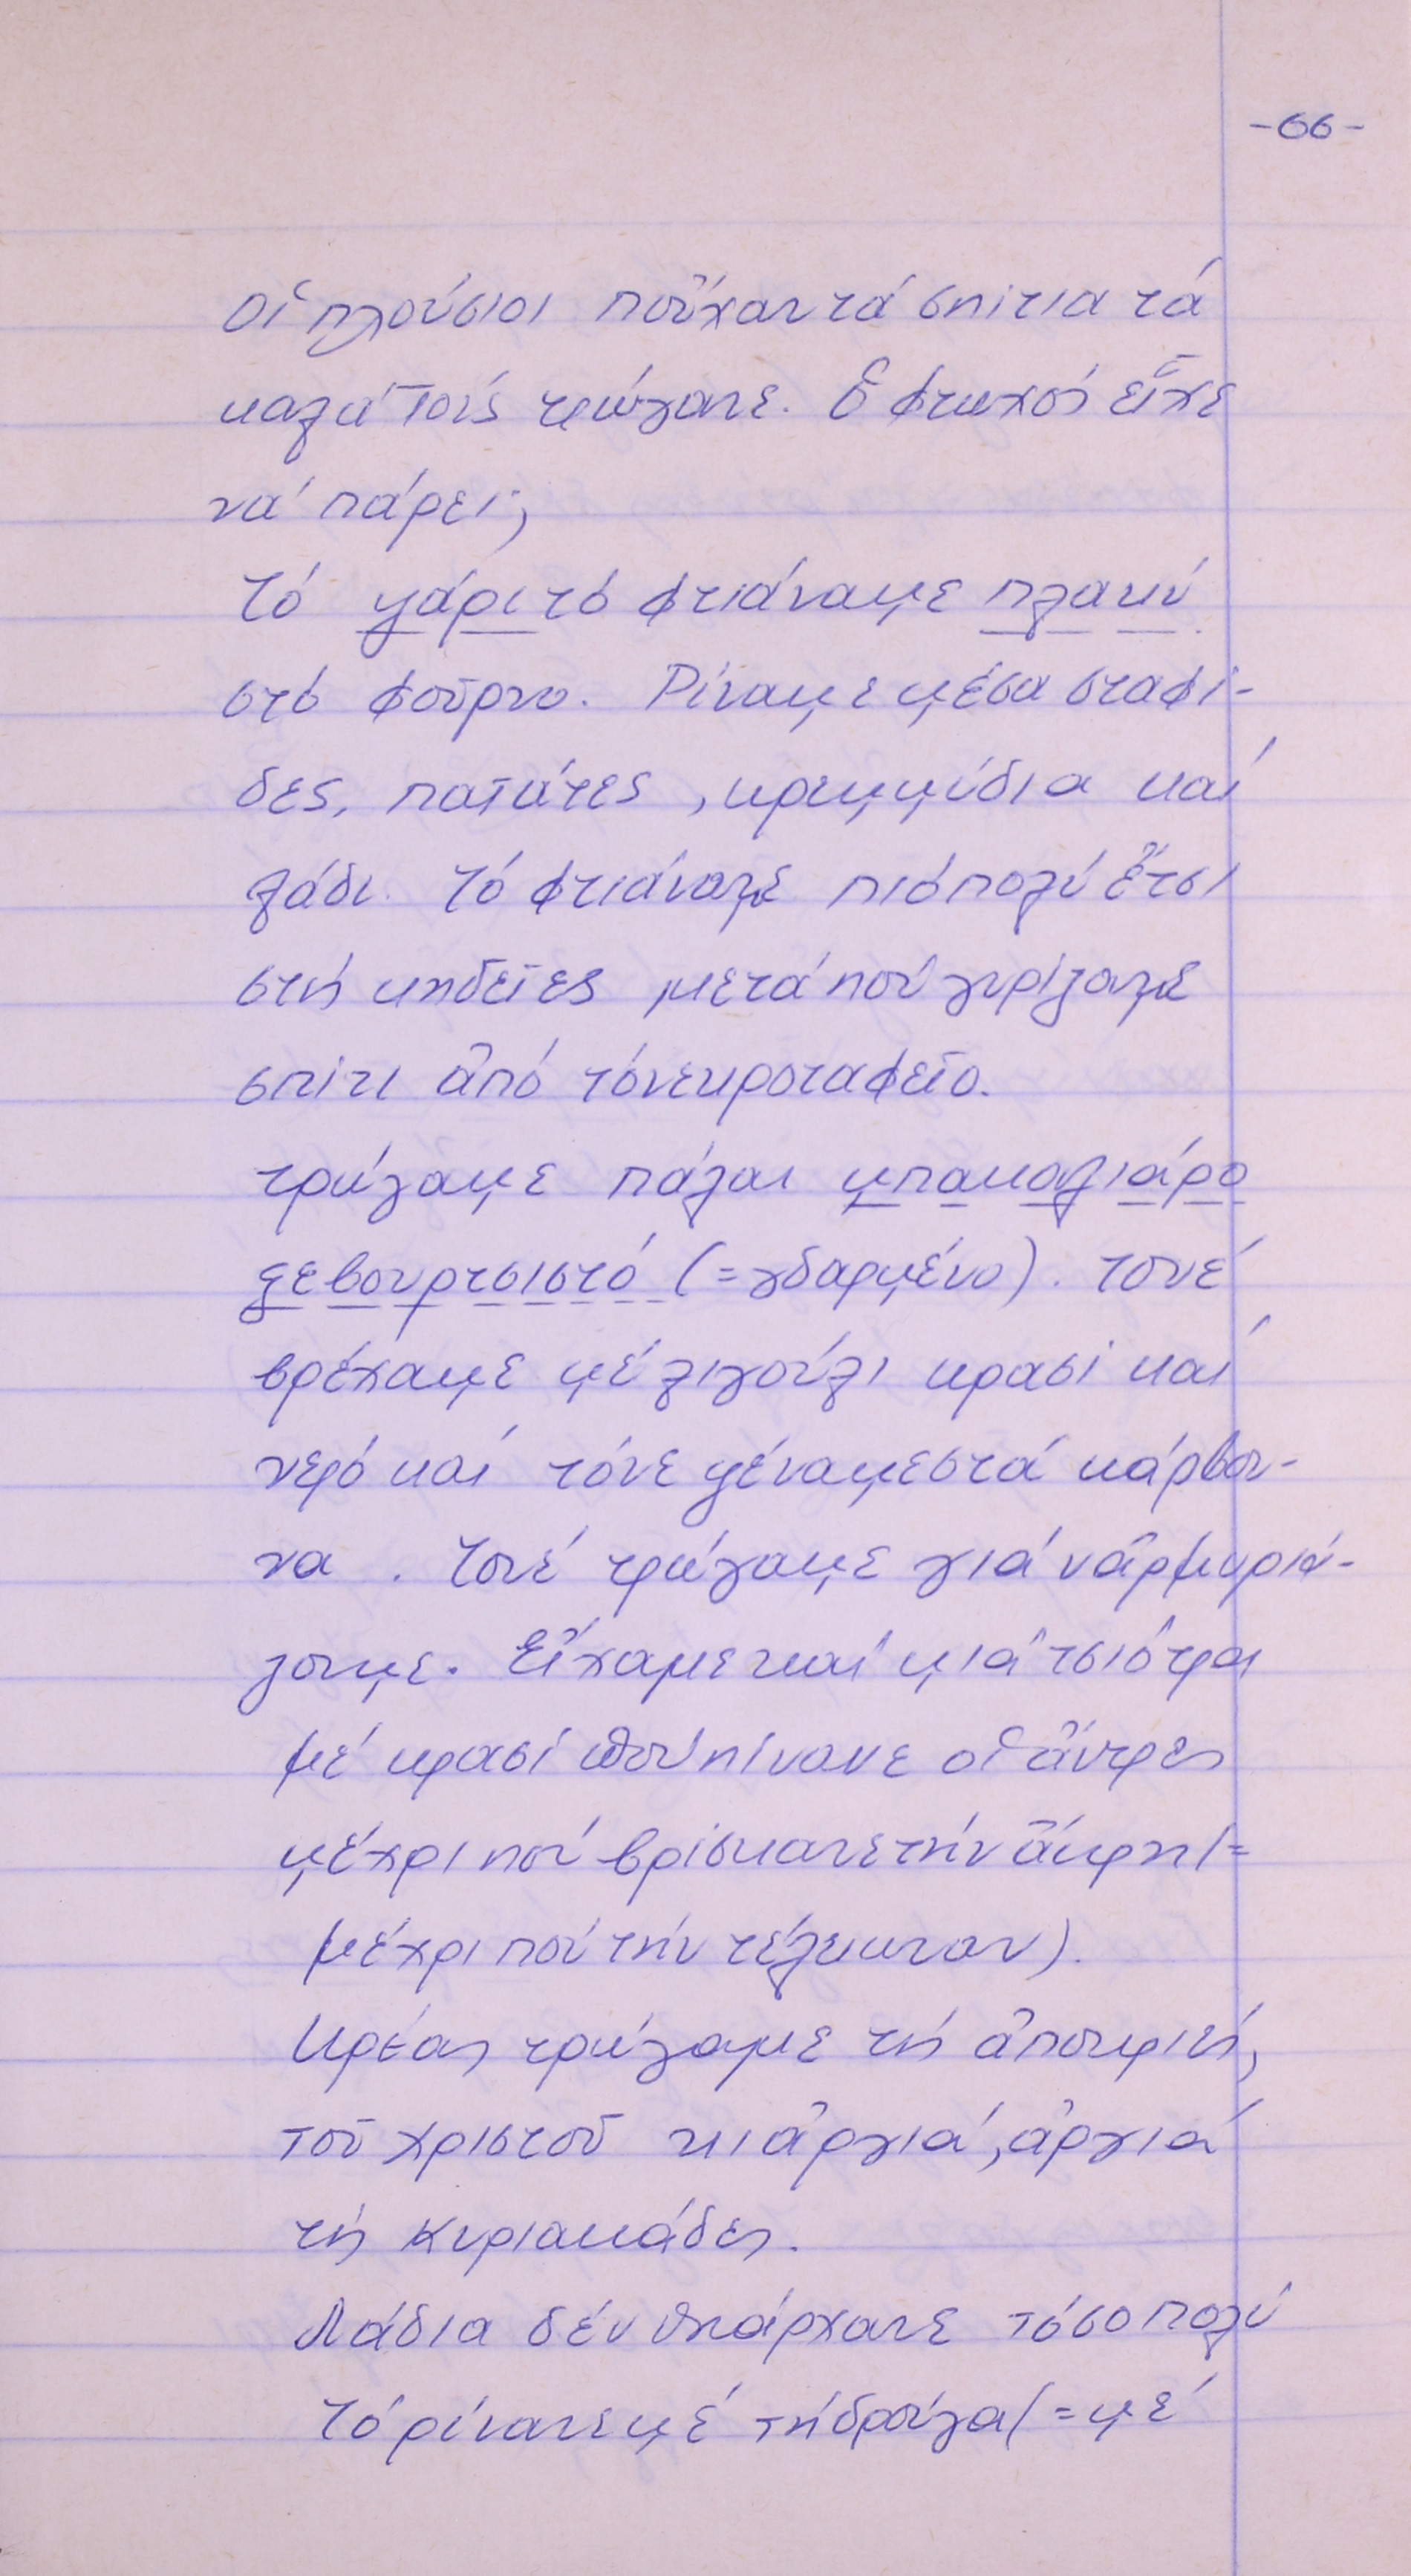 -66-
Οἱ πλούσιοι ποὖχαν τά σπίτια τά
καλά τούς τρώγανε. Ὁ φτωχός εἶχε
νά πάρει;
Τό ψάρι τό φτιάναμε πλακύ
στό φοῦρνο. Ρίναμε μέσα σταφί-
δες, πατάτες, κρεμμύδια καί
λάδι. Τό φτιάναμε πιό πολύ ἔτσι
στίς κηδεῖες μετά πού γυρίζαμε
σπίτι ἀπό τό νεκροταφεῖο.
Τρώγαμε πάλαι μπακαλιάρο
ξεβουρτσιστό (=γδαρμένο). Τονέ
βρέχαμε μέ λιγούλι κρασί καί
νερό καί τόνε ψέναμε στά κάρβου-
να. Τονέ τρώγαμε γιά ν' ἀρμυριά-
ζουμε. Εἴχαμε καί μιά τσιότρα
μέ κρασί πού πίνανε οἱ ἄντρες
μέχρι πού βρίσκανε τήν ἄκρη (=
μέχρι πού τήν τέλειωναν).
Κρέας τρώγαμε τίς ἀποκριές,
τοῦ Χριστοῦ κι ἀργιά, ἀργιά
τίς Κυριακάδες.
Λάδια δέν ὑπάρχανε τόσο πολύ
Τό ρίνανε μέ τή δρούγα (=μέ